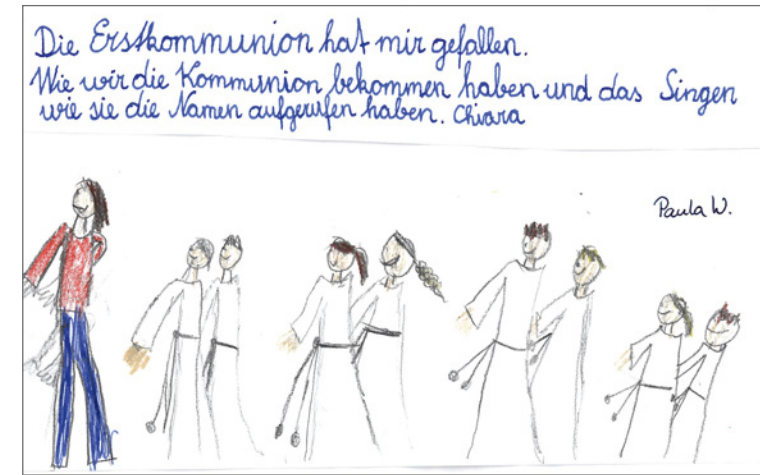 Die Erstkommunion hat mir gefallen.
Wie wir die Kommunion bekommen haben und das Singen
wie sie die Namen aufgerufen haben. Chiara
Paula W.